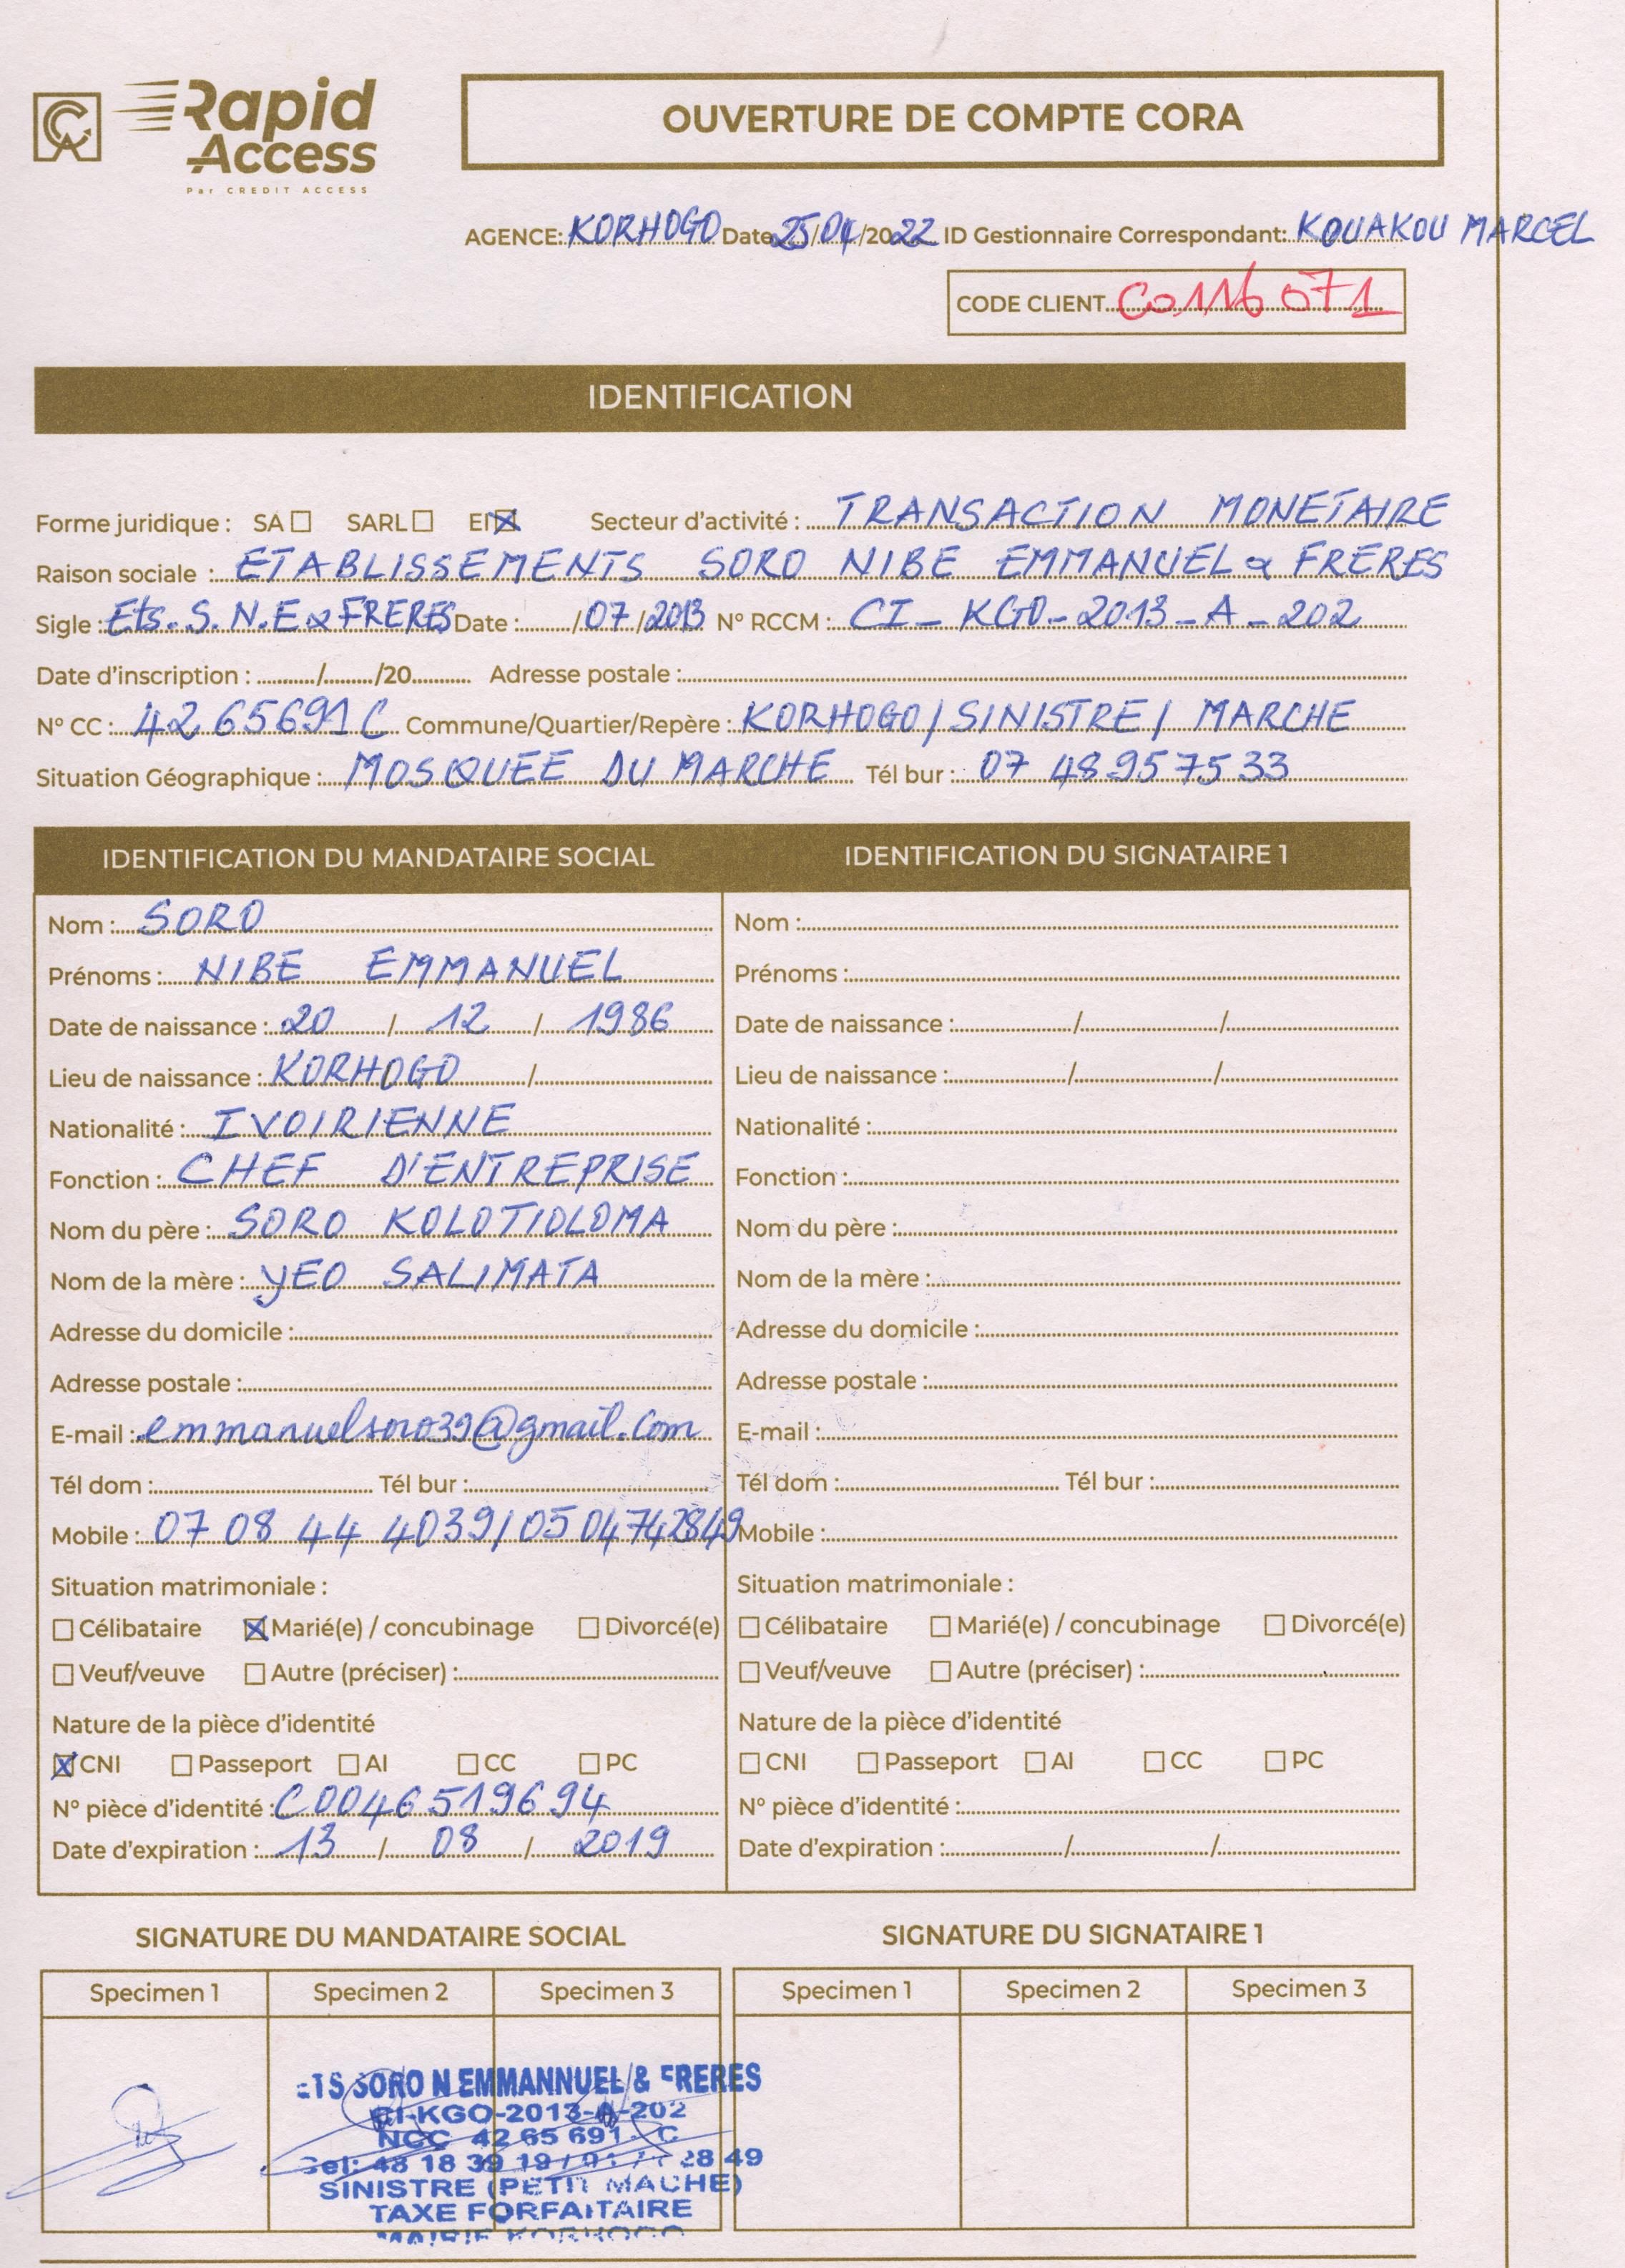 CA Rapid Access
Par CREDIT ACCESS
OUVERTURE DE COMPTE CORA
AGENCE: KORHOGO Date 25/04/2022 ID Gestionnaire Correspondant: KOUAKOU MARCEL
CODE CLIENT C0116071
IDENTIFICATION
Forme juridique : SA ☐ SARL ☐ EI ☒ Secteur d'activité : TRANSACTION MONETAIRE
Raison sociale : ETABLISSEMENTS SORO NIBE EMMANUEL & FRERES
Sigle : Ets. S. N. E & FRERES Date : /07/2013 N° RCCM : CI - KGO - 2013 - A - 202
Date d'inscription : / /20 Adresse postale :
N° CC : 42 65691 C Commune/Quartier/Repère : KORHOGO / SINISTRE / MARCHE
Situation Géographique : MOSQUEE DU MARCHE Tél bur : 07 48957533
IDENTIFICATION DU MANDATAIRE SOCIAL
Nom : SORO
Prénoms : NIBE EMMANUEL
Date de naissance : 20 / 12 / 1986
Lieu de naissance : KORHOGO /
Nationalité : IVOIRIENNE
Fonction : CHEF D'ENTREPRISE
Nom du père : SORO KOLOTIOLOMA
Nom de la mère : YEO SALIMATA
Adresse du domicile :
Adresse postale :
E-mail : emmanuelsoro39@gmail.com
Tél dom : Tél bur :
Mobile : 07 08 44 4039 / 0504742849
Situation matrimoniale :
☐ Célibataire ☒ Marié(e) / concubinage ☐ Divorcé(e)
☐ Veuf/veuve ☐ Autre (préciser) :
Nature de la pièce d'identité
☒ CNI ☐ Passeport ☐ AI ☐ CC ☐ PC
N° pièce d'identité : C0046519694
Date d'expiration : 13 / 08 / 2019
IDENTIFICATION DU SIGNATAIRE 1
Nom :
Prénoms :
Date de naissance : / /
Lieu de naissance : / /
Nationalité :
Fonction :
Nom du père :
Nom de la mère :
Adresse du domicile :
Adresse postale :
E-mail :
Tél dom : Tél bur :
Mobile :
Situation matrimoniale :
☐ Célibataire ☐ Marié(e) / concubinage ☐ Divorcé(e)
☐ Veuf/veuve ☐ Autre (préciser) :
Nature de la pièce d'identité
☐ CNI ☐ Passeport ☐ AI ☐ CC ☐ PC
N° pièce d'identité :
Date d'expiration : / /
SIGNATURE DU MANDATAIRE SOCIAL
Specimen 1 Specimen 2 Specimen 3
ETS SORO N EMMANNUEL & FRERES
CI-KGO-2013-A-202
NCC 42 65 691 C
Cel: 48 18 39 19 / 28 49
SINISTRE (PETIT MACHE)
TAXE FORFAITAIRE
MAIRIE KORHOGO
SIGNATURE DU SIGNATAIRE 1
Specimen 1 Specimen 2 Specimen 3